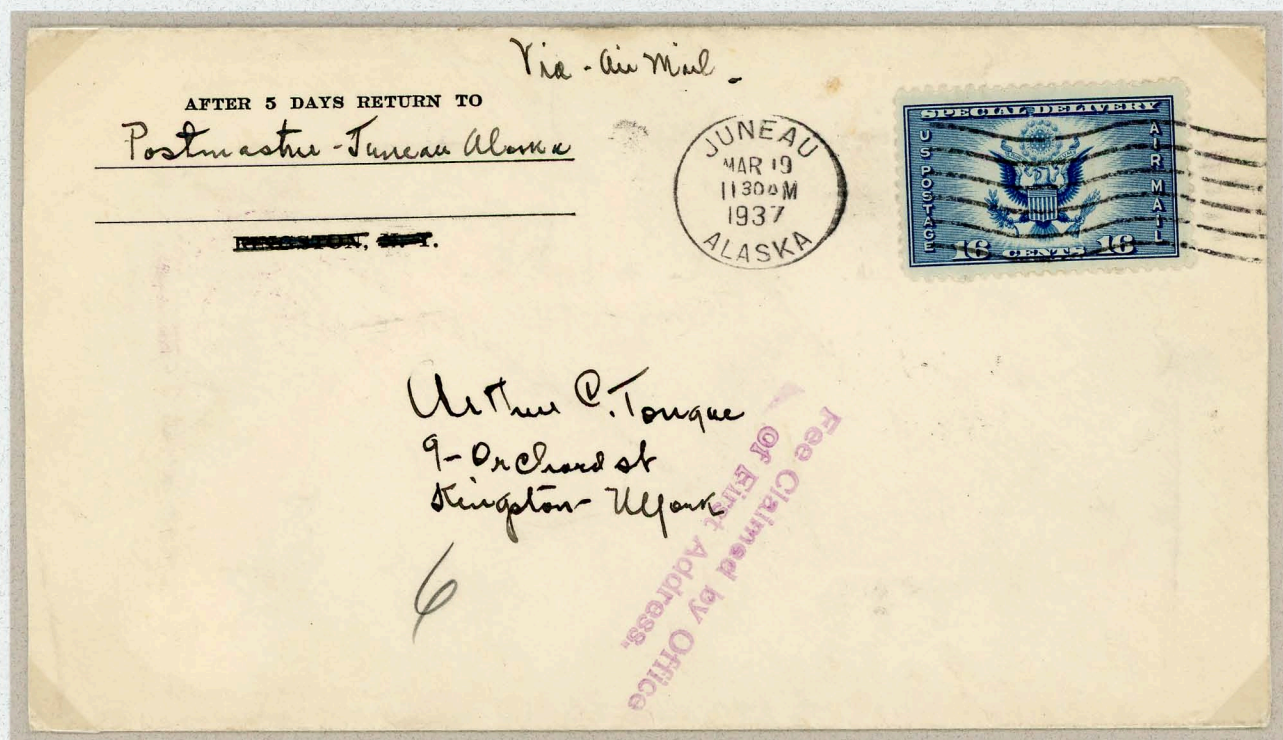 Via - Air Mail -
AFTER 5 DAYS RETURN TO
Postmaster - Juneau Alaska
KINGSTON, N. Y.
JUNEAU
MAR 19
1130AM
1937
ALASKA
SPECIAL DELIVERY
US POSTAGE
AIR MAIL
16 CENTS 16
Arthur C. Tongue
9 - Orchard st
Kingston - N York
Fee Claimed by Office
of First Address.
6